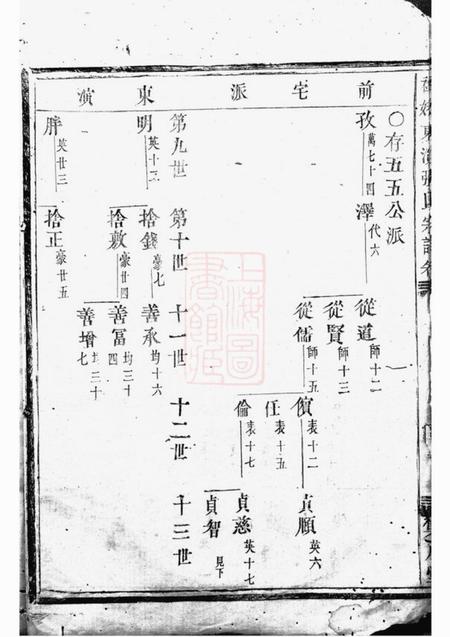 前宅派東演
○存五五公派
孜 萬七十四
澤 代六
從道 師十二
從賢 師十三
從儒 師十五
儐 表十二
任 表十五
倫 表十七
貞順 英六
貞慈 英十七
貞智 見下
第九世
第十世
十一世
十二世
十三世
明 英十二
捨錢 豪七
善承 均十六
捨敷 豪廿四
善冨 均三十四
善增 均三十七
胖 英廿三
捨正 豪廿五
上海圖書館藏